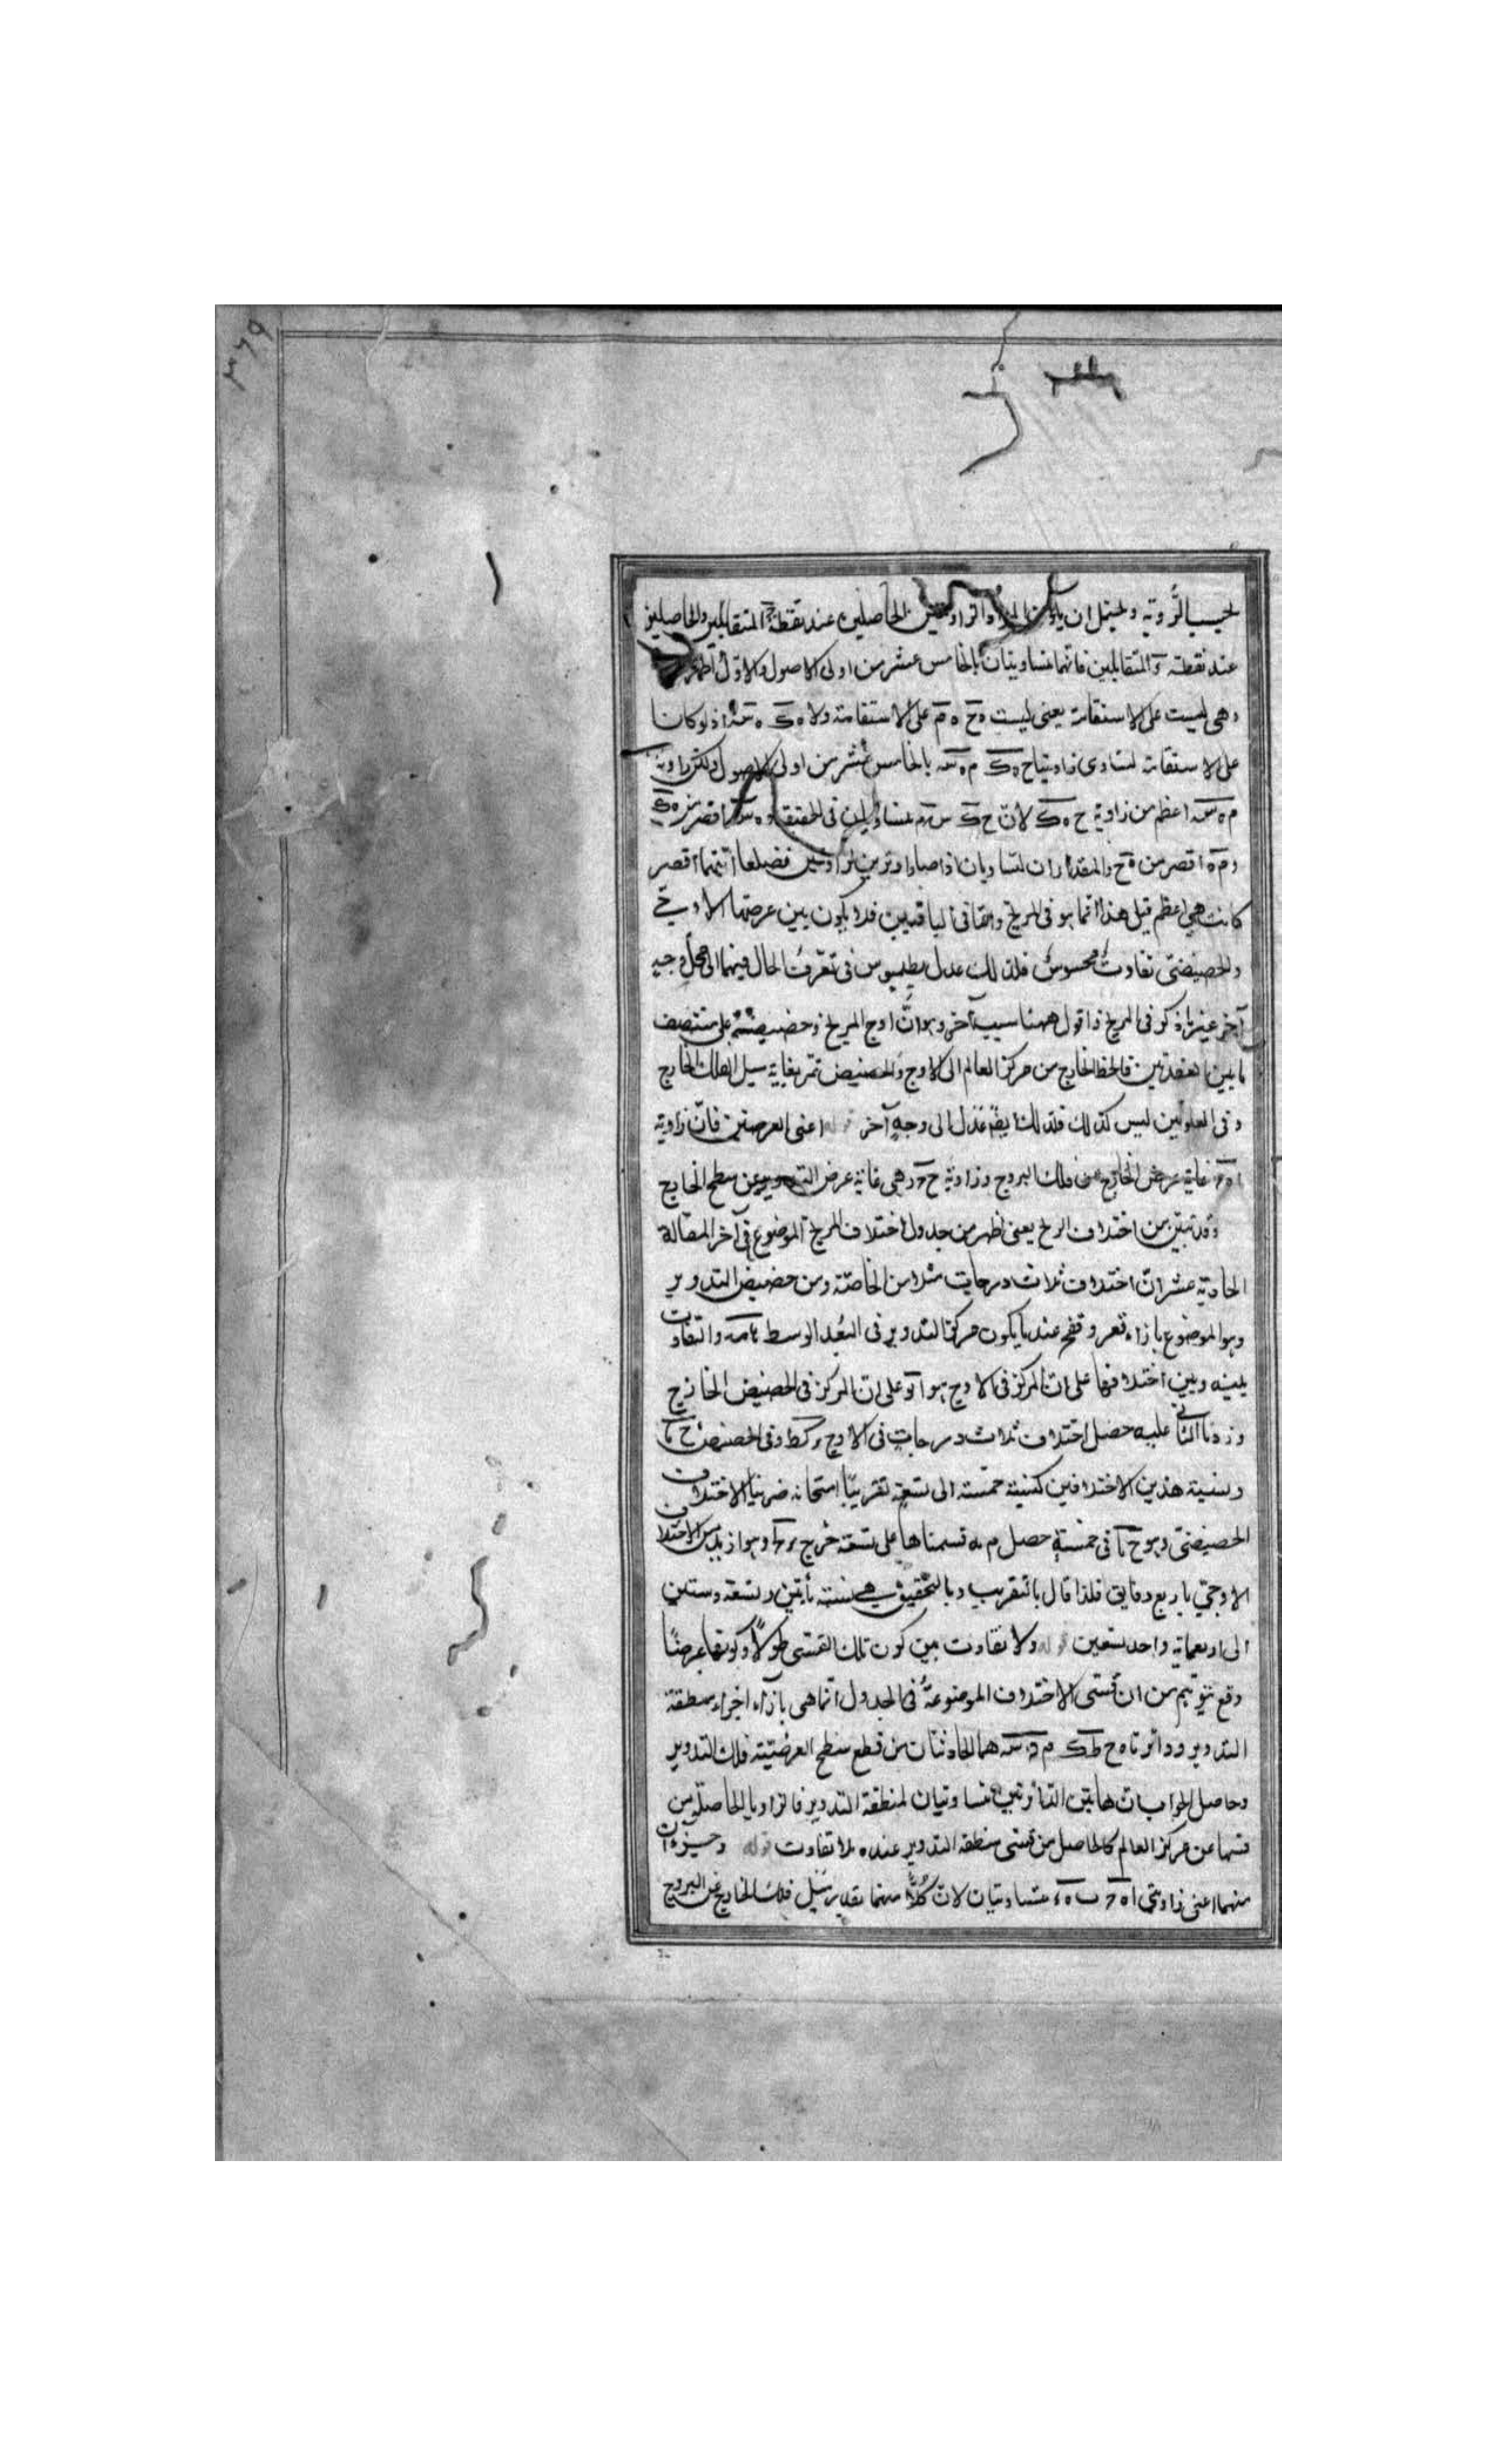 ٣٦٩
بحسب الرؤية ويحتمل ان يكون المراد الزاويتين الحاصلتين عند نقطة ح المتقابلتين والحاصلتين
عند نقطة المتقابلتين فانهما متساويتان بالخامس عشر من اولى الاصول والاول اظهر
وهي ليست على الاستقامة يعنى ليست ه ح ه م على الاستقامة ولا ه ك ه س اذ لو كانا
على الاستقامة لتساوى زاويتا ح ه ك م ه س بالخامس عشر من اولى الاصول ولكن زاوية
م ه س اعظم من زاوية ح ه ك لان ح ك س م متساويان فى الحقيقة و ه س اقصر من ه ك
و م ه اقصر من ه ح والمقداران المتساويان اذا صارا وترين لزاويتين فضلعا ايتهما اقصر
كانت هي اعظم قيل هذا انما هو فى المريخ واما فى الباقيين فلا يكون بين عرضها الاوجي
والحضيضى تفاوت محسوس فلذلك عدل بطلميوس فى تعرف الحال فيهما الى وجه
آخر غير ما ذكر فى المريخ واقول ههنا سبب آخر وهو ان اوج المريخ وحضيضه على منتصف
ما بين العقدتين فالخط الخارج من مركز العالم الى الاوج والحضيض تمر بغاية ميل الفلك الخارج
وفى العلويين ليس كذلك فلذلك ايضا عدل الى وجه آخر قوله اعنى العرضين فان زاوية
غاية عرض الخارج عن فلك البروج وزاوية ح ر هي غاية عرض التدوير عن سطح الخارج
وقد تبين من اختلاف المريخ يعنى اظهر من جدول اختلاف المريخ الموضوع فى آخر المقالة
الحادية عشر ان اختلاف ثلاث درجات مثلا من الخاصة ومن حضيض التدوير
وهو الموضوع بازاء قعر و قفح عند ما يكون مركز التدوير فى البعد الوسط والتفاوت
بينه وبين اختلافها على ان المركز فى الاوج هو على ان المركز فى الحضيض الخارج
وزدنا الثانى عليه حصل اختلاف ثلاث درجات فى الاوج ر كط وفى الحضيض
ونسبة هذين الاختلافين كنسبة خمسة الى تسعة تقريبا امتحانه ضربنا الاختلاف
الحضيضى وهو ح فى خمسة حصل م ه قسمناها على تسعة خرج وهو ازيد من الاختلاف
الاوجي باربع دقايق فلذا قال بالتقريب وبالتحقيق هي نسبة مأتين وتسعة وستين
الى اربعماية واحد تسعين قوله ولا تفاوت بين كون تلك القسى طولًا وكونها عرضًا
دفع توهم من ان قسى الاختلاف الموضوعة فى الجدول انما هي بازاء اجزاء منطقة
التدوير ودائرتا ح ط ك م س هما الحادثتان من قطع سطح العرضيتة فلك التدوير
وحاصل الجواب ان هاتين الدائرتين متساويتان لمنطقة التدوير فالزوايا الحاصلة من
قسها عن مركز العالم كالحاصل من قسى منطقة التدوير عنده بلا تفاوت قوله
منهما اعنى زاويتى متساويتان لان كلا منهما بقدر ميل فلك الخارج عن البروج